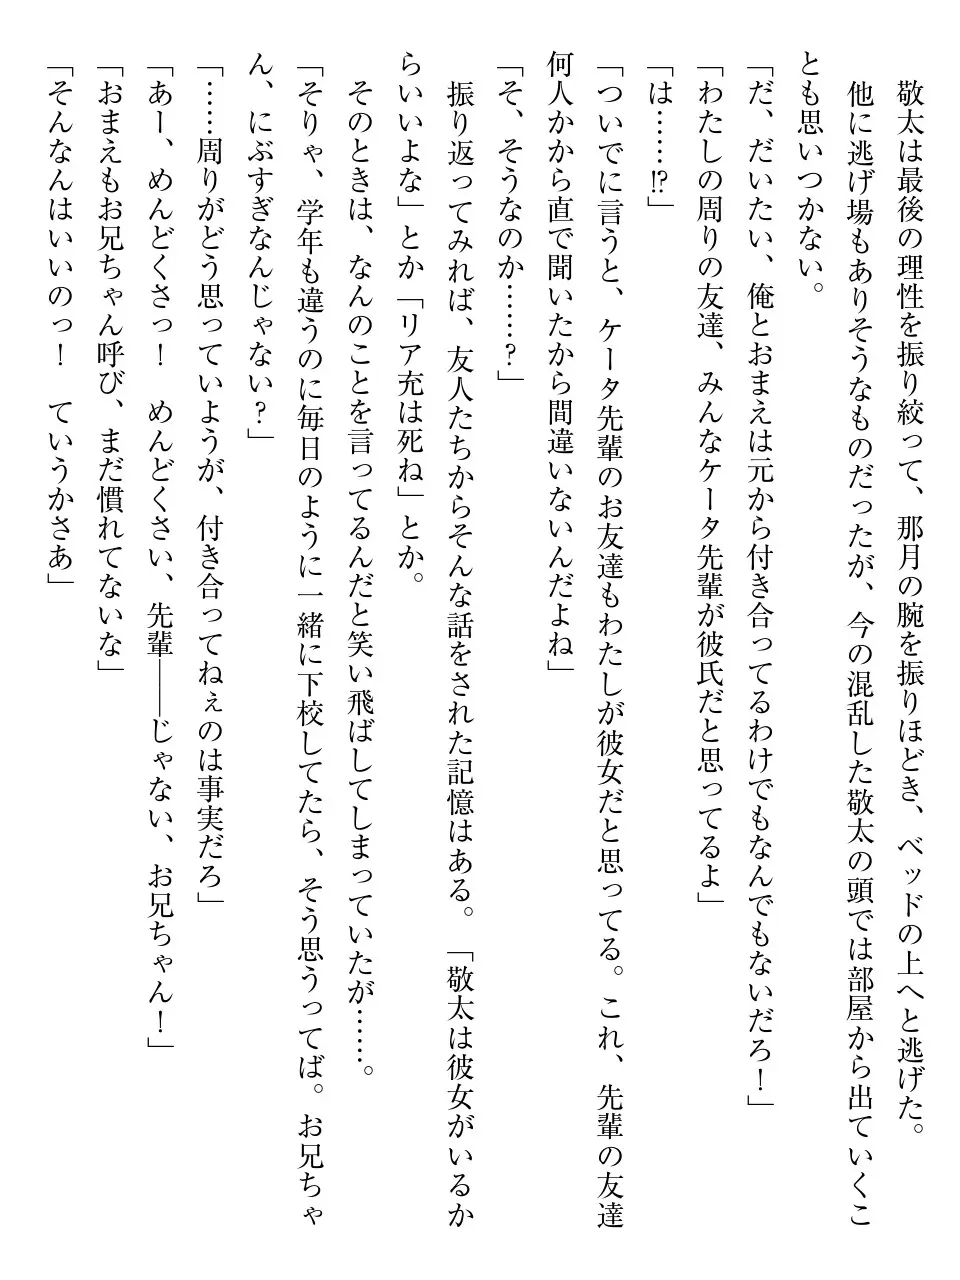 敬太は最後の理性を振り絞って、那月の腕を振りほどき、ベッドの上へと逃げた。
　他に逃げ場もありそうなものだったが、今の混乱した敬太の頭では部屋から出ていくこ
とも思いつかない。
「だ、だいたい、俺とおまえは元から付き合ってるわけでもなんでもないだろ！」
「わたしの周りの友達、みんなケータ先輩が彼氏だと思ってるよ」
「は……⁉」
「ついでに言うと、ケータ先輩のお友達もわたしが彼女だと思ってる。これ、先輩の友達
何人かから直で聞いたから間違いないんだよね」
「そ、そうなのか……？」
　振り返ってみれば、友人たちからそんな話をされた記憶はある。「敬太は彼女がいるか
らいいよな」とか「リア充は死ね」とか。
　そのときは、なんのことを言ってるんだと笑い飛ばしてしまっていたが……。
「そりゃ、学年も違うのに毎日のように一緒に下校してたら、そう思うってば。お兄ちゃ
ん、にぶすぎなんじゃない？」
「……周りがどう思っていようが、付き合ってねぇのは事実だろ」
「あー、めんどくさっ！　めんどくさい、先輩――じゃない、お兄ちゃん！」
「おまえもお兄ちゃん呼び、まだ慣れてないな」
「そんなんはいいのっ！　ていうかさあ」